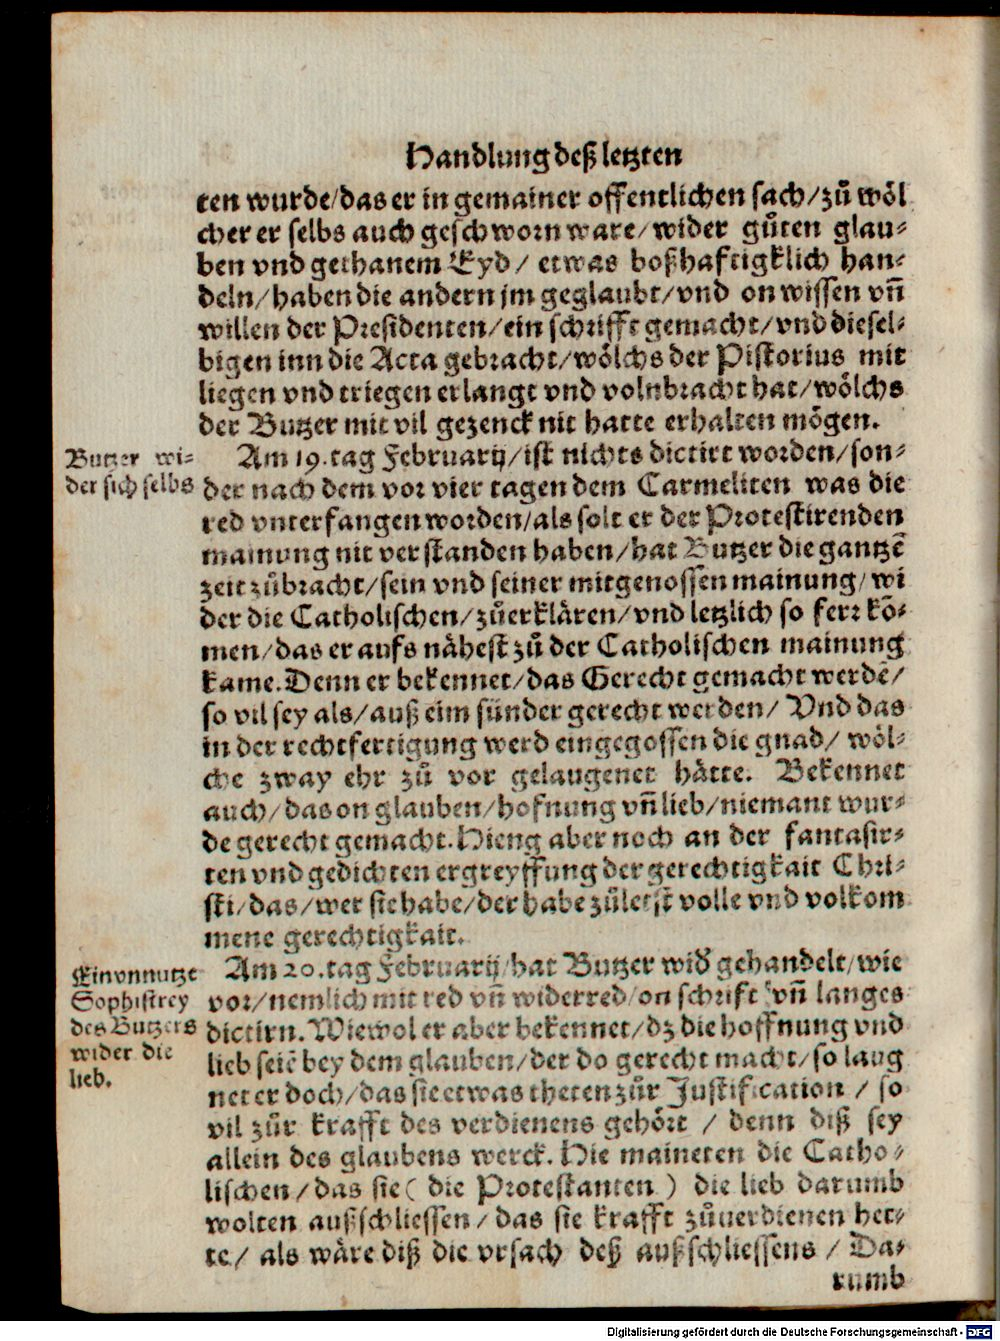 Handlung deß letzten
ten wurde/das er in gemainer offentlichen sach/zů wöl
cher er selbs auch geschworn ware/wider gůten glau-
ben vnd gethanem Eyd/ etwas boßhafftigklich han-
deln/haben die andern jm geglaubt/vnd on wissen vñ
willen der Presidenten/ein schrifft gemacht/vnd diesel-
bigen inn die Acta gebracht/wölchs der Pistorius mit
liegen vnd triegen erlangt vnd volnbracht hat/wölchs
der Butzer mit vil gezenck nit hatte erhalten mögen.
Butzer wi-
der sich selbs
Am 19. tag February/ist nichts dictirt worden/son-
der nach dem vor vier tagen dem Carmeliten was die
red vnterfangen worden/als solt er der Protestirenden
mainung nit verstanden haben/hat Butzer die gantzē
zeit zůbracht/sein vnd seiner mitgenossen mainung/wi
der die Catholischen/zůerklären/vnd letzlich so ferr kō-
men/das er aufs nähest zů der Catholischen mainung
kame. Denn er bekennet/das Gerecht gemacht werdē/
so vil sey als/auß eim sünder gerecht werden/ Vnd das
in der rechtfertigung werd eingegossen die gnad/ wöl-
che zway ehr zů vor gelaugenet hätte. Bekennet
auch/das on glauben/hofnung vñ lieb/niemant wur-
de gerecht gemacht. Hieng aber noch an der fantasir-
ten vnd gedichten ergreyffung der gerechtigkait Chri-
sti/das/wer sie habe/der habe zůletst volle vnd volkom
mene gerechtigkait.
Ein vnnutze
Sophistrey
des Butzers
wider die
lieb.
Am 20. tag February/hat Butzer widď gehandelt/wie
vor/nemlich mit red vñ widerred/on schrift vñ langes
dictirn. Wiewol er aber bekennet/dz die hoffnung vnd
lieb seiē bey dem glauben/der do gerecht macht/so laug
net er doch/das sie etwas theten zůr Justification / so
vil zůr krafft des verdienens gehört / denn diß sey
allein des glaubens werck. Hie maineten die Catho-
lischen/das sie ( die Protestanten ) die lieb darumb
wolten außschliessen/das sie krafft zůuerdienen het-
te/ als wäre diß die vrsach deß außschliessens / Da-
rumb
Digitalisierung gefördert durch die Deutsche Forschungsgemeinschaft - DFG